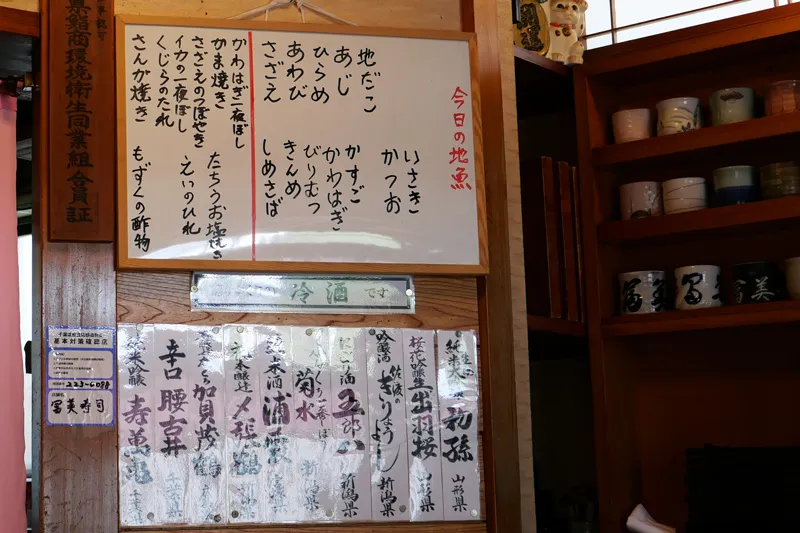 今日の地魚
地だこ
あじ
ひらめ
あわび
さざえ
いさき
かつお
かすご
かわはぎ
びりむつ
きんめ
しめさば
かわはぎ一夜ぼし
かま焼き
さざえのつぼやき
イカの一夜ぼし
くじらのたれ
さんが焼き
たちうお塩焼き
えいのひれ
もずくの酢物
冷酒です
純米 初孫 山形県
桜花吟醸 出羽桜 山形県
吟醸酒 佐渡の きりょうよし 新潟県
五郎八 新潟県
菊水 新潟県
浦霞
〆張鶴
加賀
辛口 腰古井 千葉県
純米吟醸 寿萬亀 千葉
鮨商環境衛生同業組合員証
基本対策確認店
223-6088
冨美寿司
冨美
冨
冨美